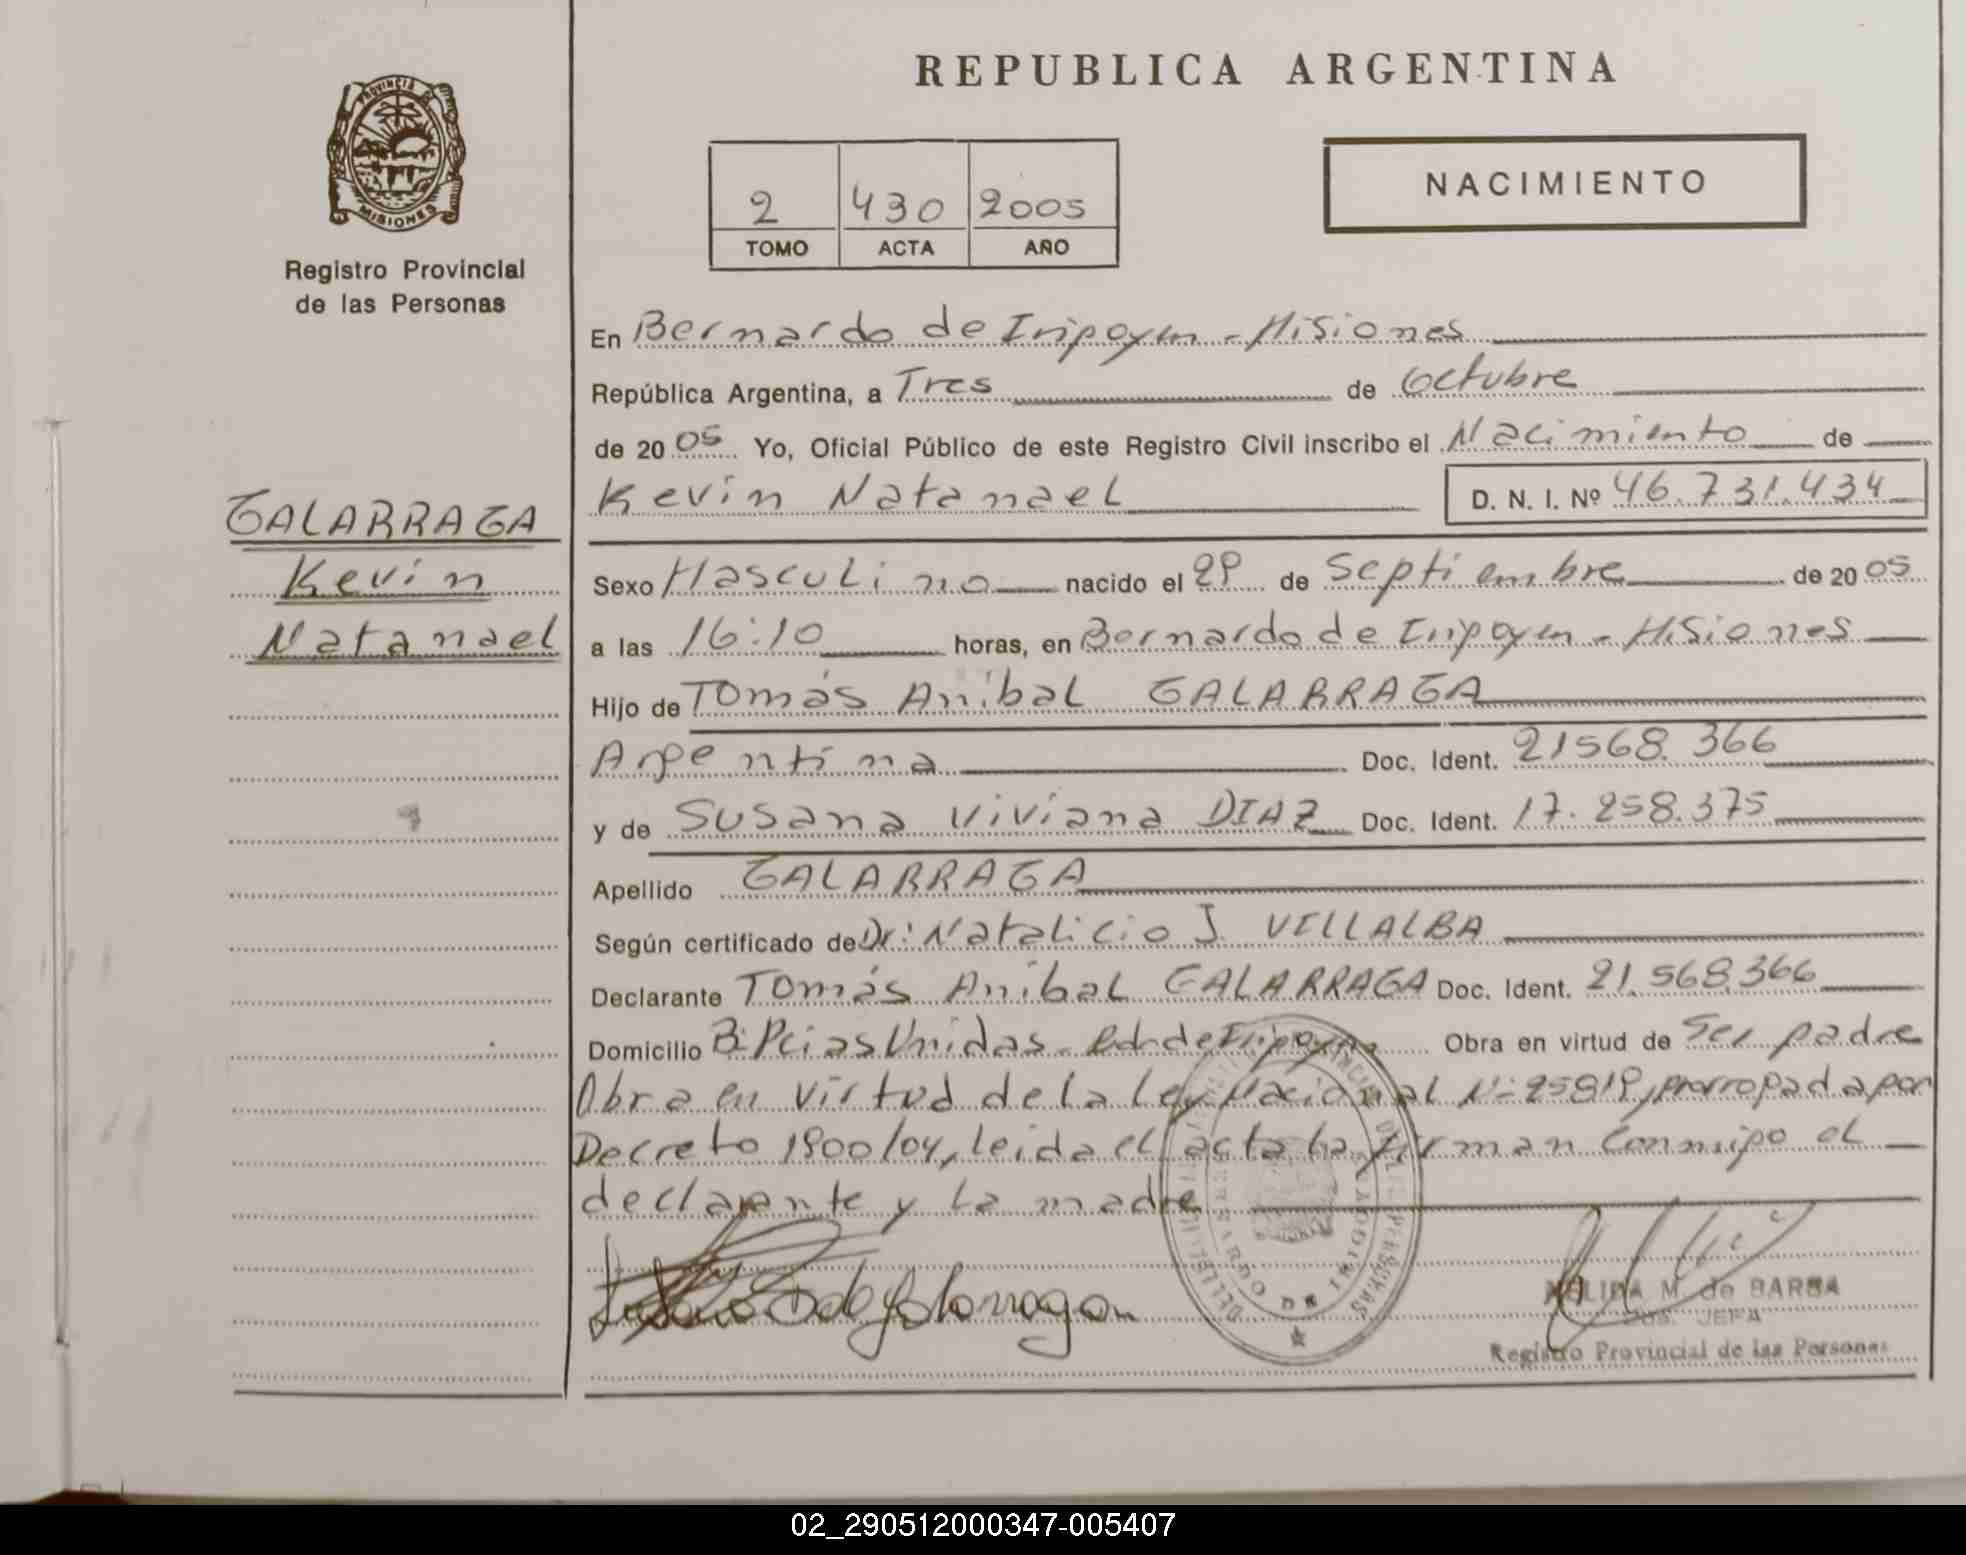 REPUBLICA ARGENTINA
PROVINCIA DE
MISIONES
Registro Provincial
de las Personas
2 430 2005
TOMO ACTA AÑO
NACIMIENTO
En Bernardo de Irigoyen - Misiones
República Argentina, a Tres de Octubre
de 20 05 Yo, Oficial Público de este Registro Civil inscribo el Nacimiento de
Kevin Natanael D. N. I. Nº 46.731.434
GALARRAGA
Kevin
Natanael
Sexo Masculino nacido el 29 de Septiembre de 20 05
a las 16:10 horas, en Bernardo de Irigoyen - Misiones
Hijo de Tomás Anibal GALARRAGA
Argentina Doc. Ident. 21568.366
y de Susana Viviana DIAZ Doc. Ident. 17.258.375
Apellido GALARRAGA
Según certificado de Dr: Natalicio J. VILLALBA
Declarante Tomás Anibal GALARRAGA Doc. Ident. 21.568.366
Domicilio Bº Pcias Unidas - Bdo de Irigoyen Obra en virtud de Ser padre
Obra en virtud de la Ley Nacional Nº 25819, prorrogada por
Decreto 1900/04, leida el acta la firman Conmigo el
declarante y la madre
M. de BARBA
JEFA
Registro Provincial de las Personas
BERNARDO DE IRIGOYEN
02_290512000347-005407